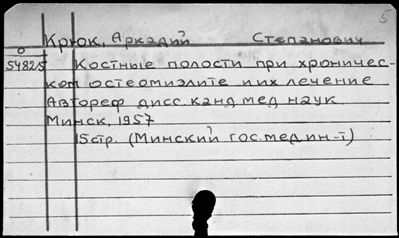 5
Крюк, Аркадий Степанович
О
54825 Костные полости при хроничес-
ком остеомиэлите и их лечение
Автореф дисс. канд мед наук.
Минск, 1957
15стр. (Минский гос. мед ин-т)